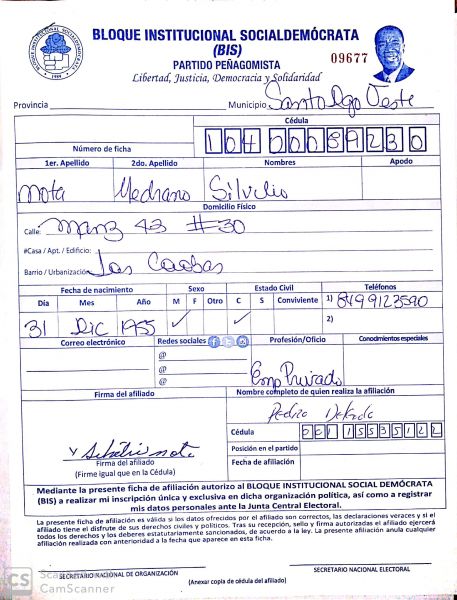 BLOQUE INSTITUCIONAL SOCIALDEMÓCRATA
(BIS)
PARTIDO PEÑAGOMISTA
09677
Libertad, Justicia, Democracia y Solidaridad
Provincia Municipio Santo Dgo Oeste
Cédula
Número de ficha 10450089230
1er. Apellido 2do. Apellido Nombres Apodo
Mota Medrano Silvilio
Domicilio Físico
Calle: Manz 43 #30
#Casa / Apt. / Edificio:
Barrio / Urbanización: Las Caobas
Fecha de nacimiento Sexo Estado Civil Teléfonos
Día Mes Año M F Otro C S Conviviente 1) 8499123590
31 Dic 1955 ✓ ✓ 2)
Correo electrónico Redes sociales Profesión/Oficio Conodmientos especiales
@
@ Emp Privado
@
Firma del afiliado Nombre completo de quien realiza la afiliación
Pedro
Cédula 001 15535122
Posición en el partido
Firma del afiliado
(Firme igual que en la Cédula)
Fecha de afiliación
Mediante la presente ficha de afiliación autorizo al BLOQUE INSTITUCIONAL SOCIAL DEMÓCRATA
(BIS) a realizar mi inscripción única y exclusiva en dicha organización política, así como a registrar
mis datos personales ante la Junta Central Electoral.
La presente ficha de afiliación es válida si los datos ofrecidos por el afiliado son correctos, las declaraciones veraces y si el
afiliado tiene el disfrute de sus derechos civiles y políticos. Tras su recepción, sello y firma autorizadas el afiliado ejercerá
todos los derechos y los deberes estatutariamente sancionados, de acuerdo a la ley. La presente afiliación anula cualquier
afiliación realizada con anterioridad a la fecha que aparece en esta ficha.
SECRETARIO NACIONAL DE ORGANIZACIÓN SECRETARIO NACIONAL ELECTORAL
(Anexar copia de cédula del afiliado)
CS
CamScanner